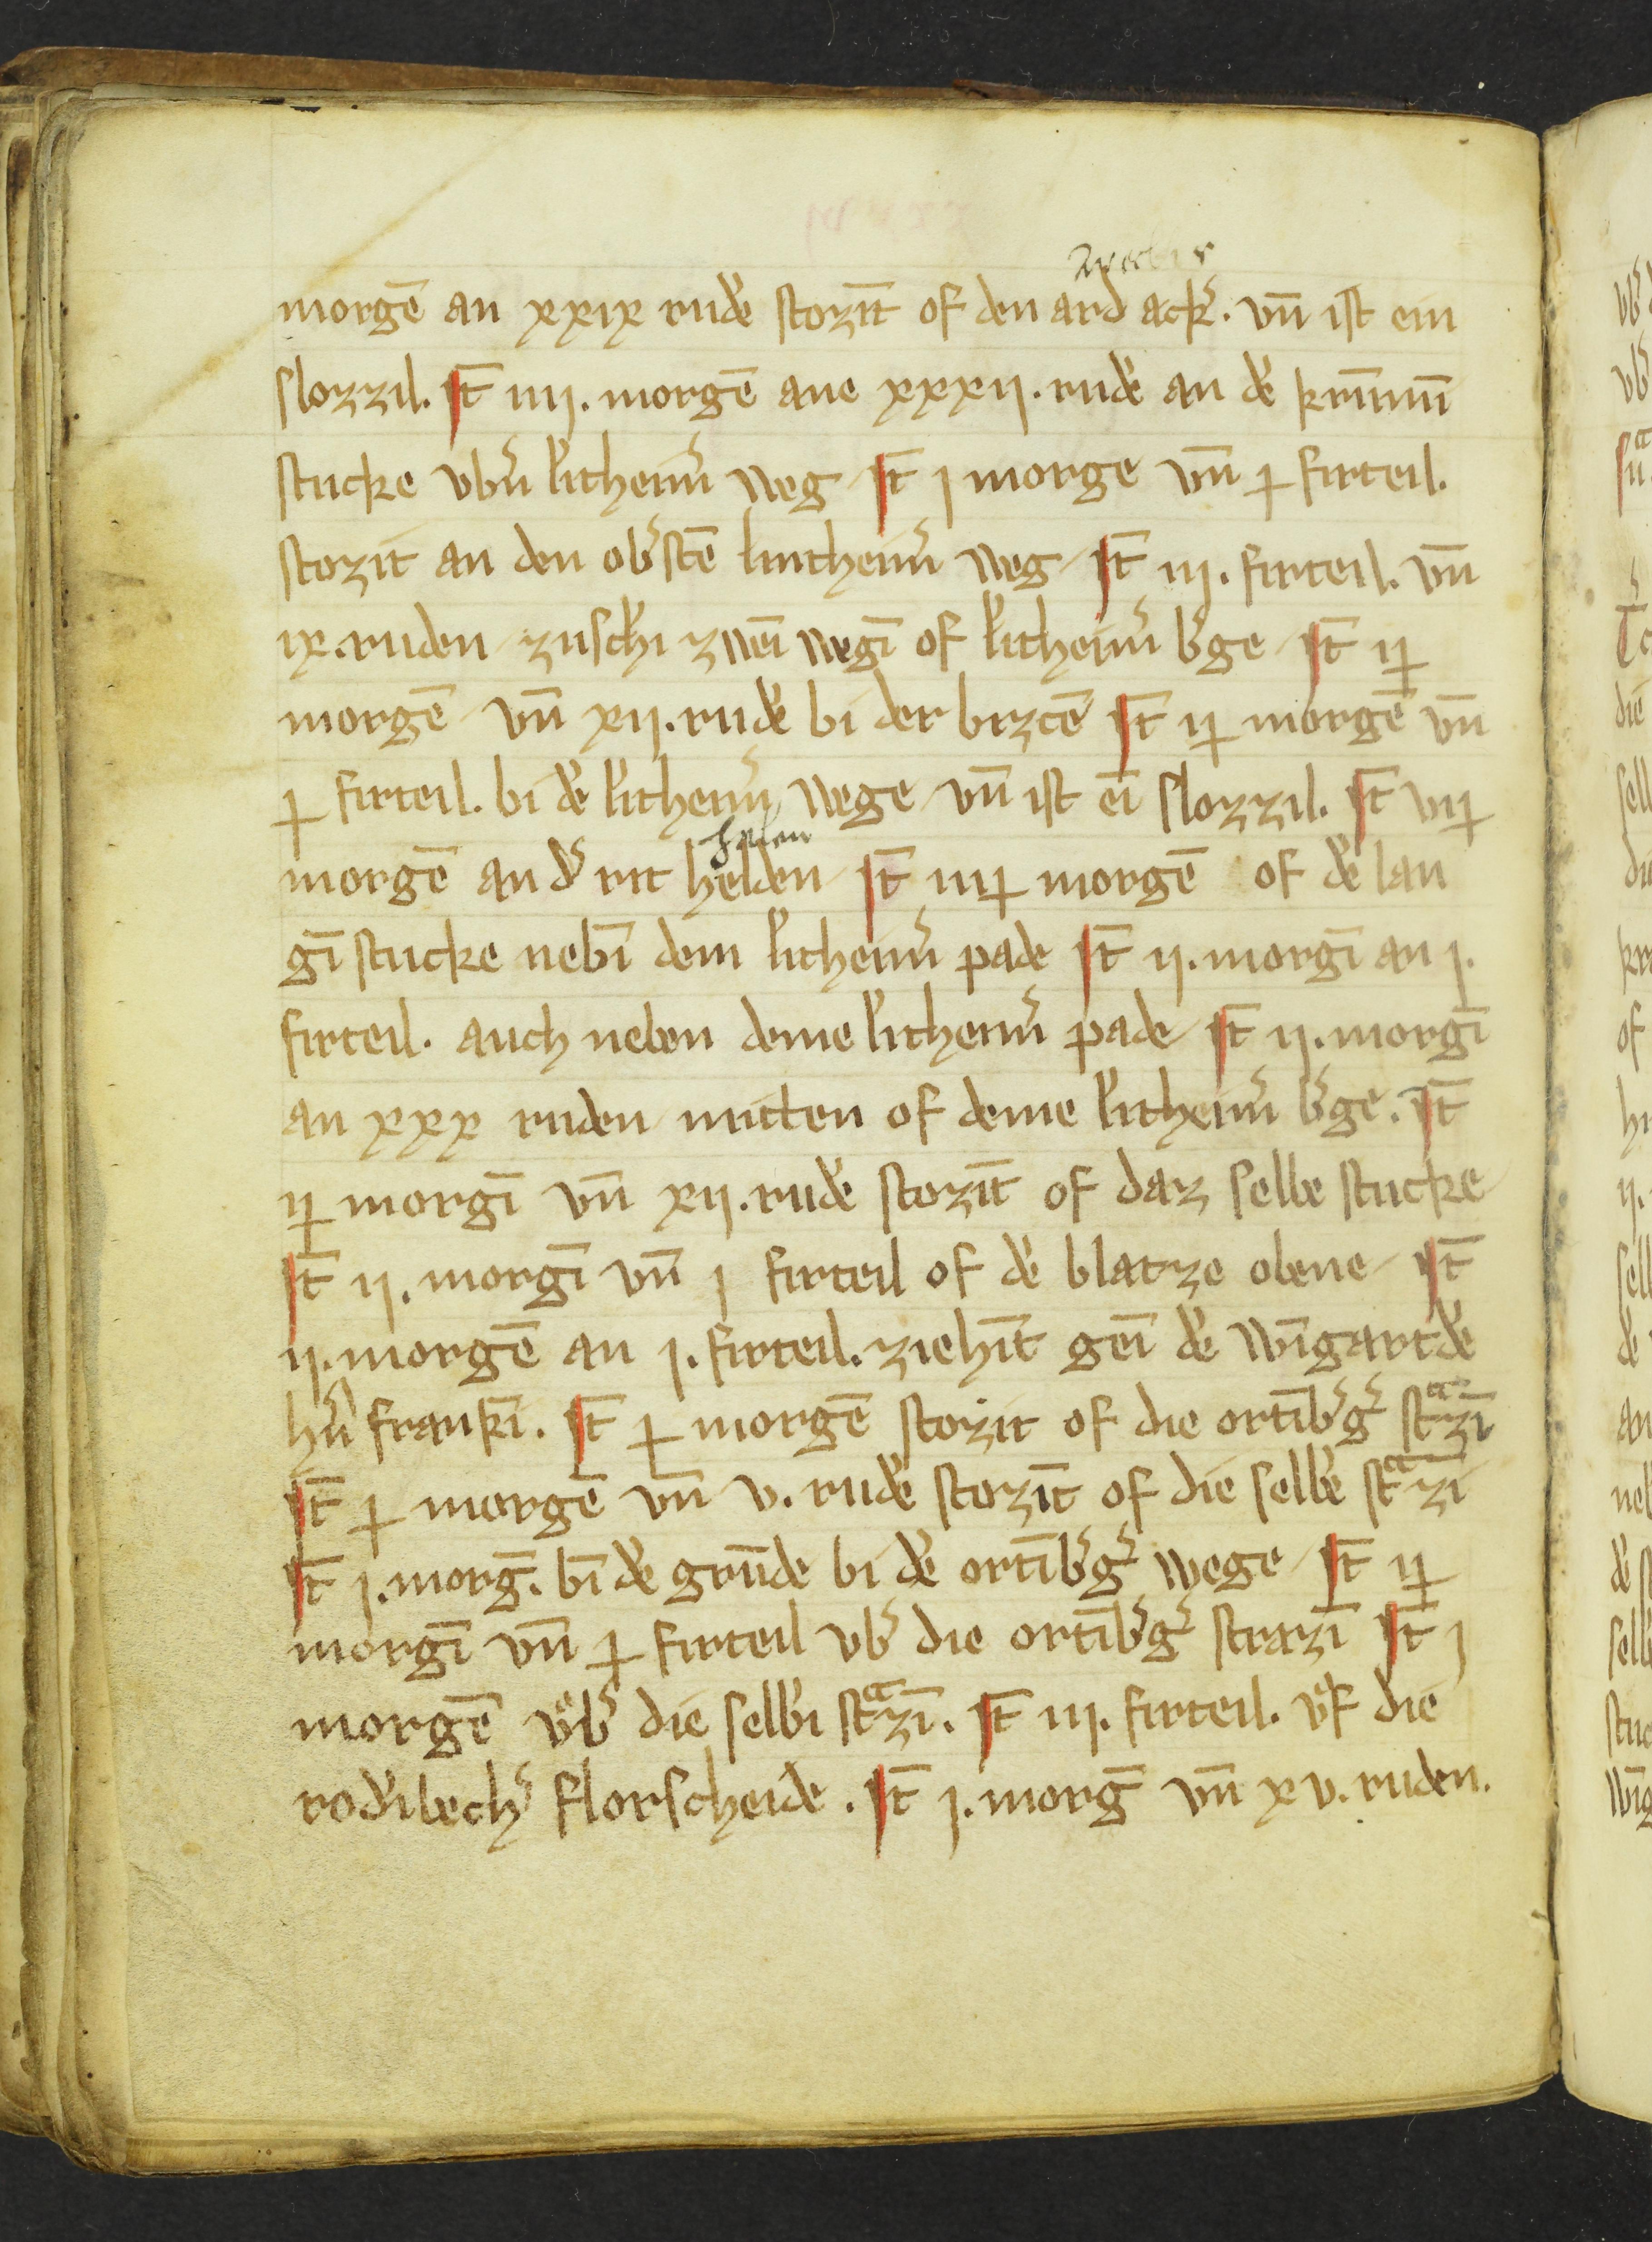 morgē an xxix rudē stozīt of den ard ack̕. vn̄ ist ein
slozzil. Jt̄ iiij. morgē ane xxxij. rudē an dē krūmū
stucke vb̕n lītheim̕ weg Jt̄ j morge vn̄ ꝉ firteil.
stozit an den ob̕stē lintheim̕ weg Jt̄ iij. firteil. vn̄
ix. ruden zusch̄i zwēi wegī of lītheim̕ b̕ge Jt̄ ij
morgē vn̄ xij. rudē bi der bizcē Jt̄ ij morgē vn̄
ꝉ firteil. bi dē lītheim̕ wege vn̄ ist eī slozzil. Jt̄ vij
helen
morgē an d̕ rit helden Jt̄ iiij morgē of dē lan
gī stucke nebī dem lītheim̕ pade Jt̄ ij. morgī an j.
firteil. auch neben deme lītheim̕ pade Jt̄ ij. morgī
an xxx ruden mitten of deme lītheim̕ b̕ge. Jt̄
ij morgī vn̄ xij. rudē stozīt of daz selbe stucke
Jt̄ ij. morgī vn̄ j firteil of dē blatze obene Jt̄
ij. morgē an j. firteil. ziehīt geī dē wīgartdē
h̕n frankī. Jt̄ ꝉ morgē stozit of die ortīb̕g̕ stᵃzī
Jt̄ ꝉ morgē vn̄ v. rudē stozīt of die selbē stᵃzī
Jt̄ j. morḡ. bī dē grūde bi dē ortīb̕g̕ wege Jt̄ ij
morgī vn̄ ꝉ firteil vb̕ die ortīb̕g̕ strazī Jt̄ j
morgē vͦb̕ die selbī stᵃzī. Jt̄ iij. firteil. vͦf die
rod̕ibech̕ florscheide. Jt̄ j. morḡ vn̄ xv. ruden.